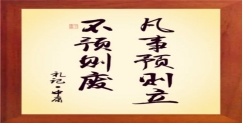 凡事预则立
不预则废
礼记·中庸